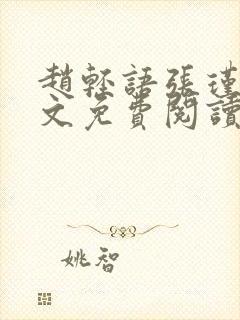 趙輕語張瑾
文免費閱讀
姚智